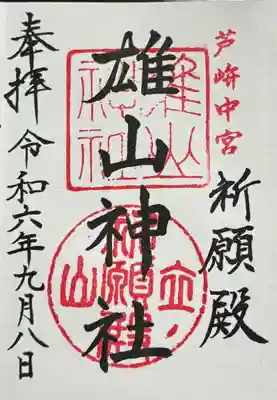 芦峅中宮
祈願殿
雄山神社
奉拝
令和六年九月八日
雄山神社
立山
祈願殿